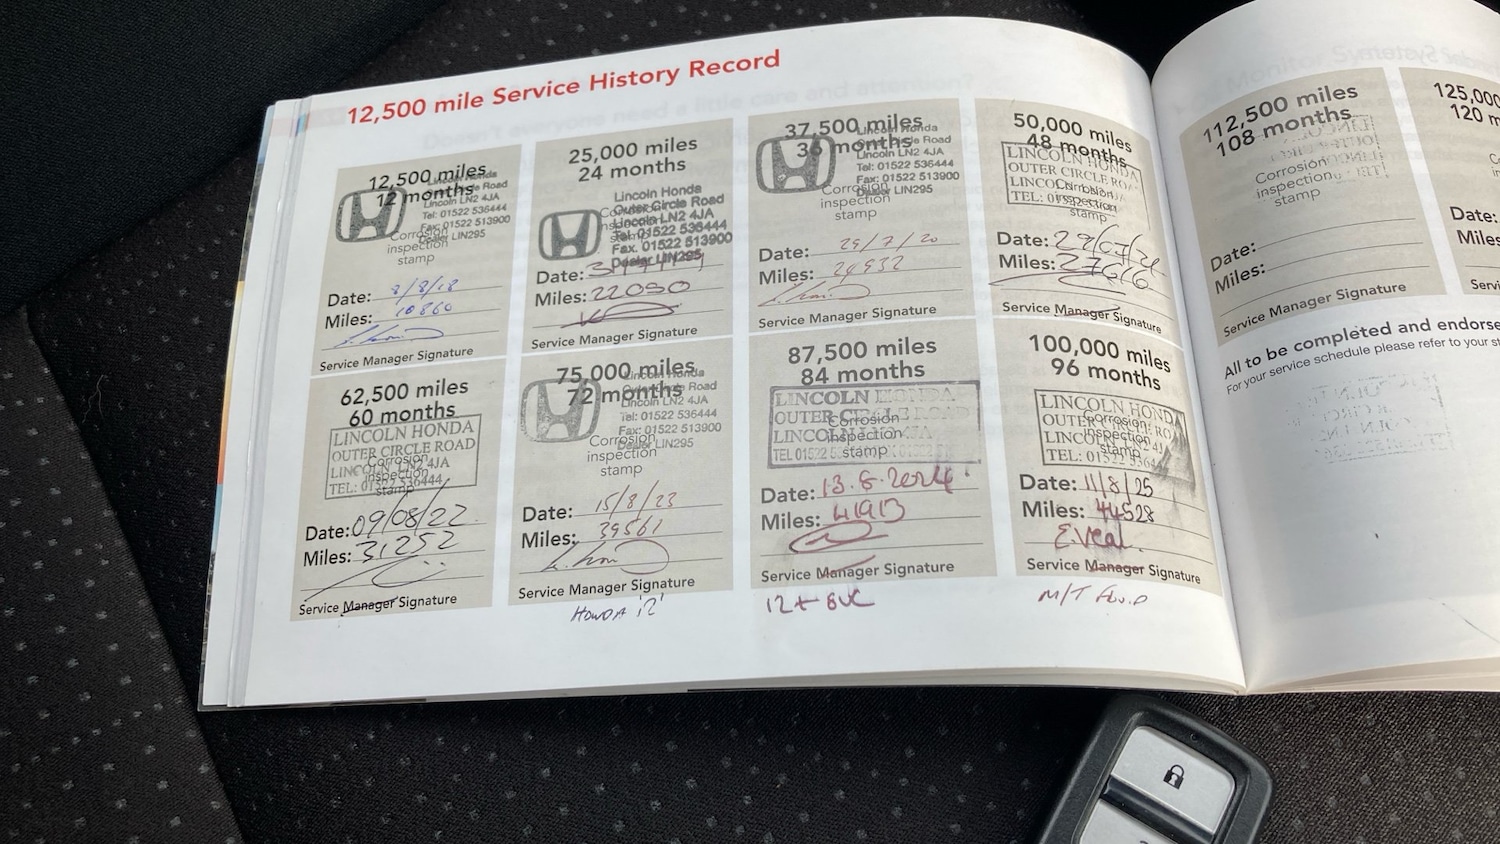 12,500 mile Service History Record
12,500 miles
12 months
Lincoln Honda
Outer Circle Road
Lincoln LN2 4JA
Tel: 01522 536444
Fax: 01522 513900
Dealer LIN295
Corrosion
inspection
stamp
Date: 8/8/18
Miles: 10860
Service Manager Signature
25,000 miles
24 months
Lincoln Honda
Outer Circle Road
Lincoln LN2 4JA
Tel. 01522 536444
Fax. 01522 513900
Dealer LIN295
Date:
Miles: 22090
Service Manager Signature
37,500 miles
36 months
Lincoln Honda
Outer Circle Road
Lincoln LN2 4JA
Tel: 01522 536444
Fax: 01522 513900
Dealer LIN295
Corrosion
inspection
stamp
Date: 29/7/20
Miles: 24932
Service Manager Signature
50,000 miles
48 months
LINCOLN HONDA
OUTER CIRCLE ROA
LINCOLN
TEL: 01522
Corrosion
inspection
stamp
Date: 29/07/21
Miles: 27616
Service Manager Signature
62,500 miles
60 months
LINCOLN HONDA
OUTER CIRCLE ROAD
LINCOLN LN2 4JA
TEL: 01522 536444
Corrosion
inspection
stamp
Date: 09/08/22
Miles: 31252
Service Manager Signature
75,000 miles
72 months
Lincoln Honda
Outer Circle Road
Lincoln LN2 4JA
Tel: 01522 536444
Fax: 01522 513900
Dealer LIN295
Corrosion
inspection
stamp
Date: 15/8/23
Miles: 39561
Service Manager Signature
HONDA '12'
87,500 miles
84 months
LINCOLN HONDA
OUTER CIRCLE ROAD
LINCOLN LN2 4JA
TEL 01522
Corrosion
inspection
stamp
Date: 13.8.2024
Miles: 41913
Service Manager Signature
12+ SVC
100,000 miles
96 months
LINCOLN HONDA
OUTER CIRCLE RO
LINCOLN LN2 4J
TEL: 01522 53644
Corrosion
inspection
stamp
Date: 11/8/25
Miles: 44528
E Veal
Service Manager Signature
M/T Fluid
112,500 miles
108 months
Corrosion
inspection
stamp
Date:
Miles:
Service Manager Signature
125,000
120 m
Date:
Miles
Servi
All to be completed and endorse
For your service schedule please refer to your s